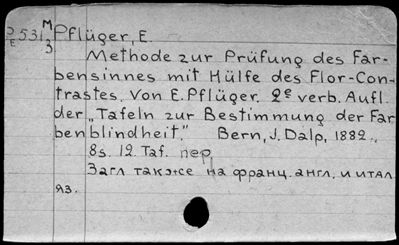 М
Э 531 Pflüger, E.
Е 3
Methode zur Prüfung des Far-
bensinnes mit Hülfe des Flor-Con-
trastes. Von E. Pflüger. 2е verb. Aufl.
der „Tafeln zur Bestimmung der Far
benblindheit." Bern, J. Dalp, 1882.,
8s. 12. Taf. пер.
Загл также на франц. англ. и итал
яз.